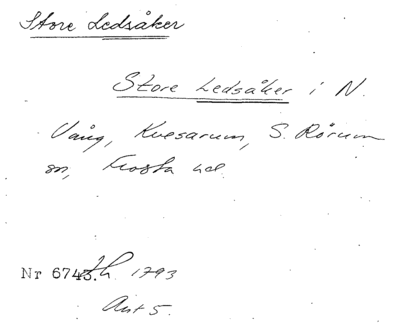 Store Ledsåker
Store Ledsåker i N.
Vång, Kvesarum, S. Rörum
sn, Frosta hd
Nr 6743. 1793
Akt 5.